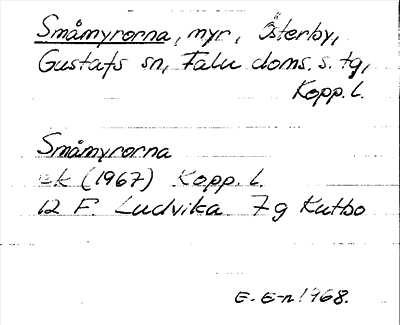 Småmyrorna, myr, Österby,
Gustafs sn, Falu doms. s. tg,
Kopp. l.
Småmyrorna
ek (1967) Kopp. l.
12 F Ludvika 7g Kutbo
E. E-n 1968.